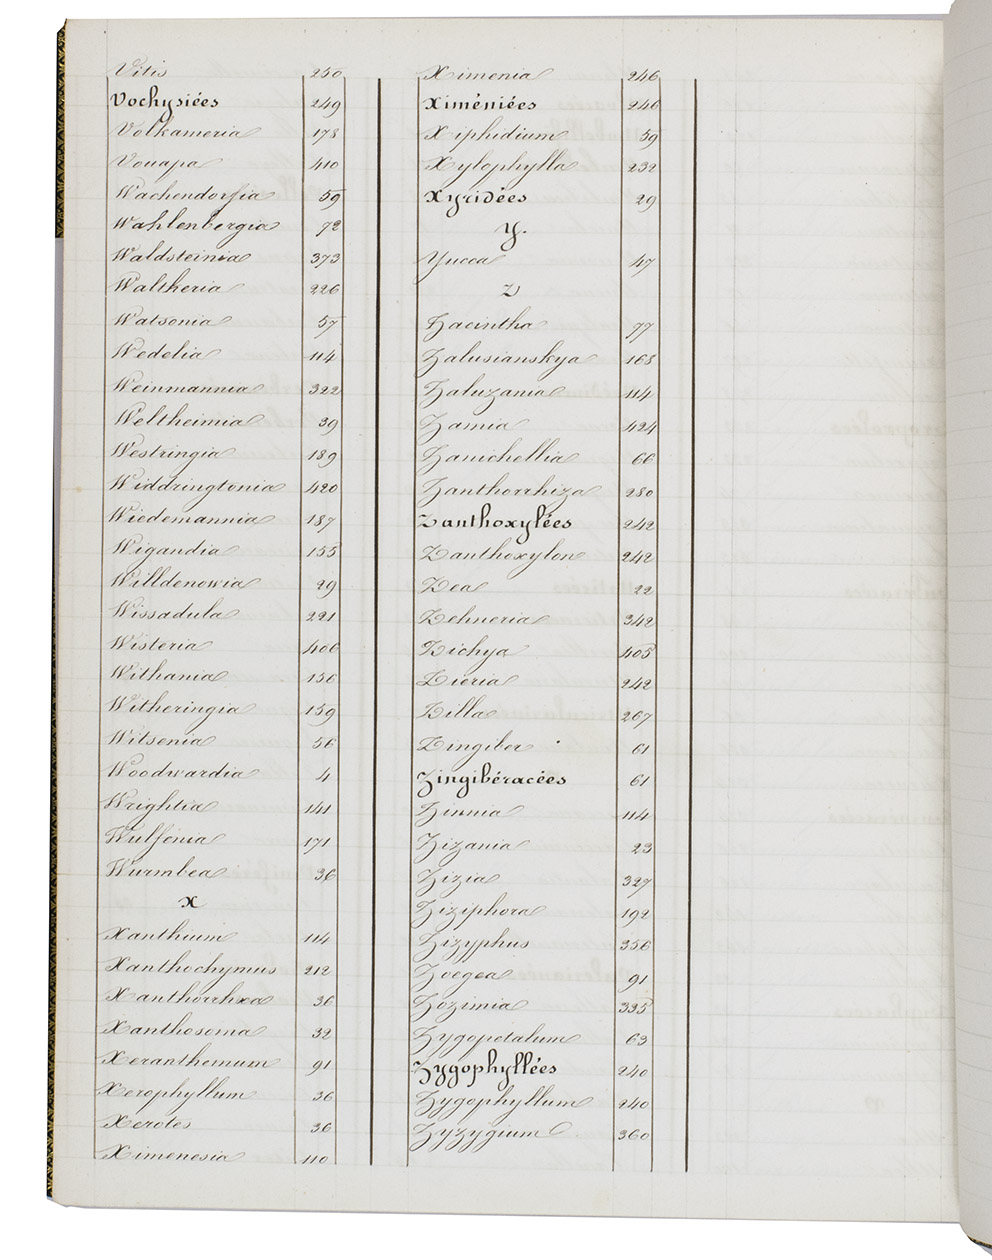 Vitis 250
Vochysiées 249
Volkameria 178
Vouapa 410
Wachendorfia 59
Wahlenbergia 72
Waldsteinia 373
Waltheria 226
Watsonia 57
Wedelia 114
Weinmannia 322
Weltheimia 39
Westringia 189
Widdringtonia 420
Wiedemannia 187
Wigandia 155
Willdenowia 29
Wissadula 221
Wisteria 406
Withania 156
Witheringia 159
Witsenia 56
Woodwardia 4
Wrightia 141
Wulfenia 171
Wurmbea 36
X
Xanthium 114
Xanthochymus 212
Xanthorrhæa 36
Xanthosoma 32
Xeranthemum 91
Xerophyllum 36
Xerotes 36
Ximenesia 110
Ximenia 246
Ximéniées 246
Xiphidium 59
Xylophylla 232
Xyridées 29
Y.
Yucca 47
Z
Zacintha 77
Zalusianskya 168
Zaluzania 114
Zamia 424
Zanichellia 66
Zanthorrhiza 280
Zanthoxylées 242
Zanthoxylon 242
Zea 22
Zehneria 342
Zichya 405
Zieria 242
Zilla 267
Zingiber 61
Zingibéracées 61
Zinnia 114
Zizania 23
Zizia 327
Ziziphora 192
Zizyphus 356
Zoegea 91
Zozimia 335
Zygopetalum 63
Zygophyllées 240
Zygophyllum 240
Zyzygium 360